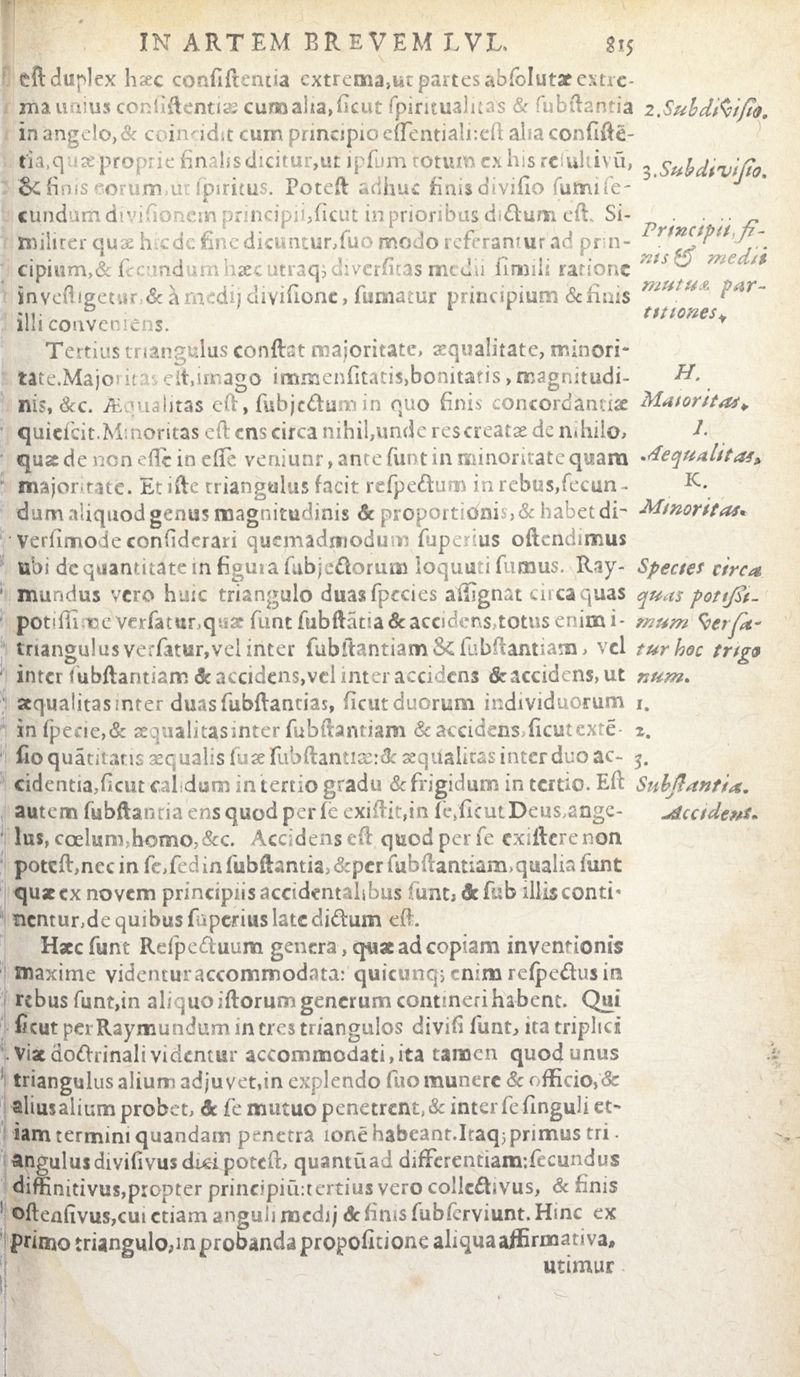 IN ARTEM BREVEM LVL. 815
est duplex hæc consistentia extrema, ut partes absolutæ extre-
ma unius consistentiæ cum alia, sicut spiritualitas & substantia
2. Subdivisio.
in angelo, & coincidit cum principio essentiali: est alia consistē-
tia, quæ proprie finalis dicitur, ut ipsum totum ex his resultivū,
3. Subdivisio.
& finis eorum, ut spiritus. Potest adhuc finis divisio sumi se-
cundum divisionem principii, sicut in prioribus dictum est. Si-
militer quæ hic de fine dicuntur, suo modo referantur ad prin-
Principii, fi-
cipium, & secundum hæc utraq; diversitas medii simili ratione
nis & medii
investigetur, & à medij divisione, sumatur principium & finis
mutuæ par-
illi conveniens.
titiones.
Tertius triangulus constat majoritate, æqualitate, minori-
tate. Majoritas est, imago immensitatis, bonitatis, magnitudi-
H.
nis, &c. Æqualitas est, subjectum in quo finis concordantiæ
Maioritas.
quiescit. Minoritas est ens circa nihil, unde res creatæ de nihilo,
I.
quæ de non esse in esse veniunt, ante sunt in minoritate quam
Aequalitas,
majoritate. Et iste triangulus facit respectum in rebus, secun-
K.
dum aliquod genus magnitudinis & proportionis, & habet di-
Minoritas.
versimode considerari quemadmodum superius ostendimus
ubi de quantitate in figura subjectorum loquuti sumus. Ray-
Species circa
mundus vero huic triangulo duas species assignat circa quas
quas potissi-
potissime versatur, quæ sunt substātia & accidens, totus enim i-
mum versa-
triangulus versatur, vel inter substantiam & substantiam, vel
tur hoc trigo
inter substantiam & accidens, vel inter accidens & accidens, ut
num.
æqualitas inter duas substantias, sicut duorum individuorum
1.
in specie, & æqualitas inter substantiam & accidens, sicut extē-
2.
sio quātitatis æqualis suæ substantiæ: & æqualitas inter duo ac-
3.
cidentia, sicut calidum in tertio gradu & frigidum in tertio. Est
Substantia.
autem substantia ens quod per se existit, in se, sicut Deus, ange-
Accidens.
lus, cœlum, homo, &c. Accidens est quod per se existere non
potest, nec in se, sed in substantia, & per substantiam, qualia sunt
quæ ex novem principiis accidentalibus sunt, & sub illis conti-
nentur, de quibus superius late dictum est.
Hæc sunt Respectuum genera, quæ ad copiam inventionis
maxime videntur accommodata: quicunq; enim respectus in
rebus sunt, in aliquo istorum generum contineri habent. Qui
sicut per Raymundum in tres triangulos divisi sunt, ita triplici
viæ doctrinali videntur accommodati, ita tamen quod unus
triangulus alium adjuvet, in explendo suo munere & officio, &
alius alium probet, & se mutuo penetrent, & inter se singuli et-
iam termini quandam penetra ionē habeant. Itaq; primus tri-
angulus divisivus dici potest, quantū ad differentiam: secundus
diffinitivus, propter principiū: tertius vero collectivus, & finis
ostensivus, cui etiam anguli medij & finis subserviunt. Hinc ex
primo triangulo, in probanda propositione aliqua affirmativa,
utimur